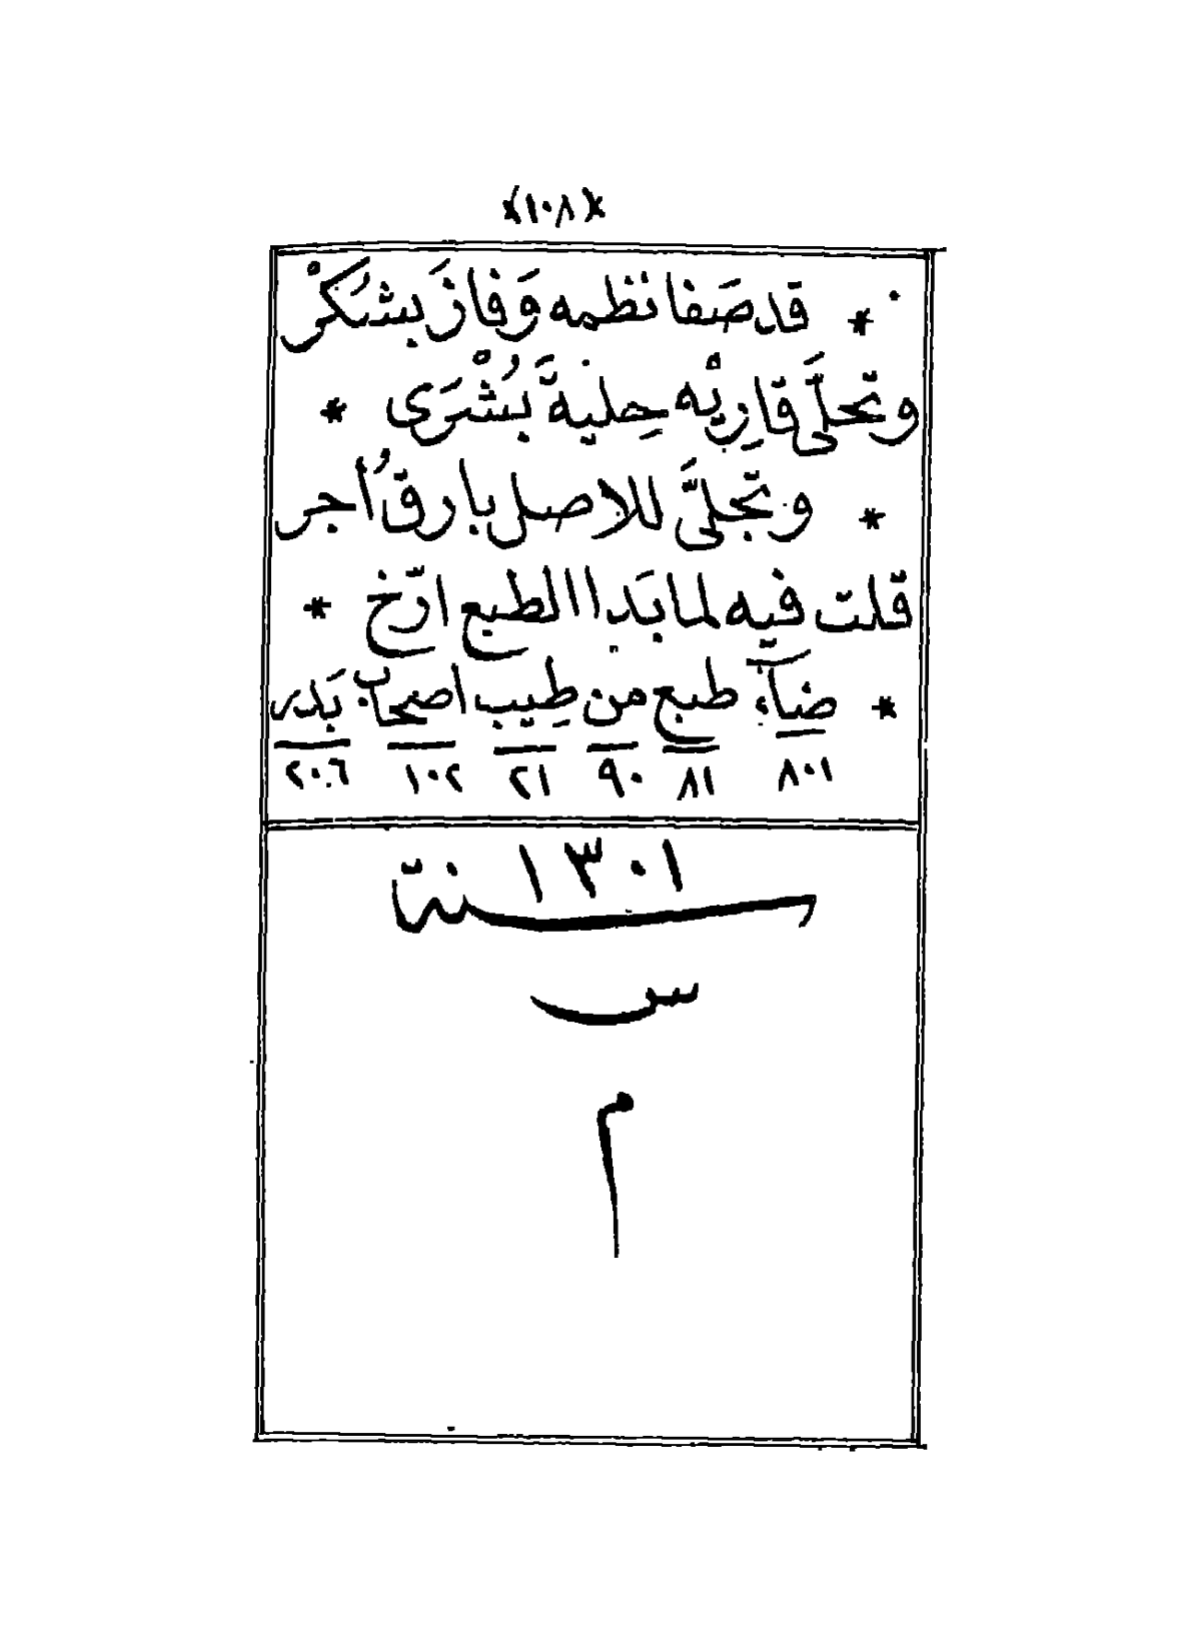 *(١٠٨)*
* قد صَفا نظمه وَفازَ بشَكْر
وتحلَّى قارِيْه حِليةَ بُشْرَى *
* وتجلَّى للاصل بارقُ أجر
قلت فيه لما بَدا الطبع ارّخ *
* ضيآء طبع من طِيب اصحاب بَدر
٨٠١ ٨١ ٩٠ ٢١ ١٠٢ ٢٠٦
١٣٠١
سنة
س
م